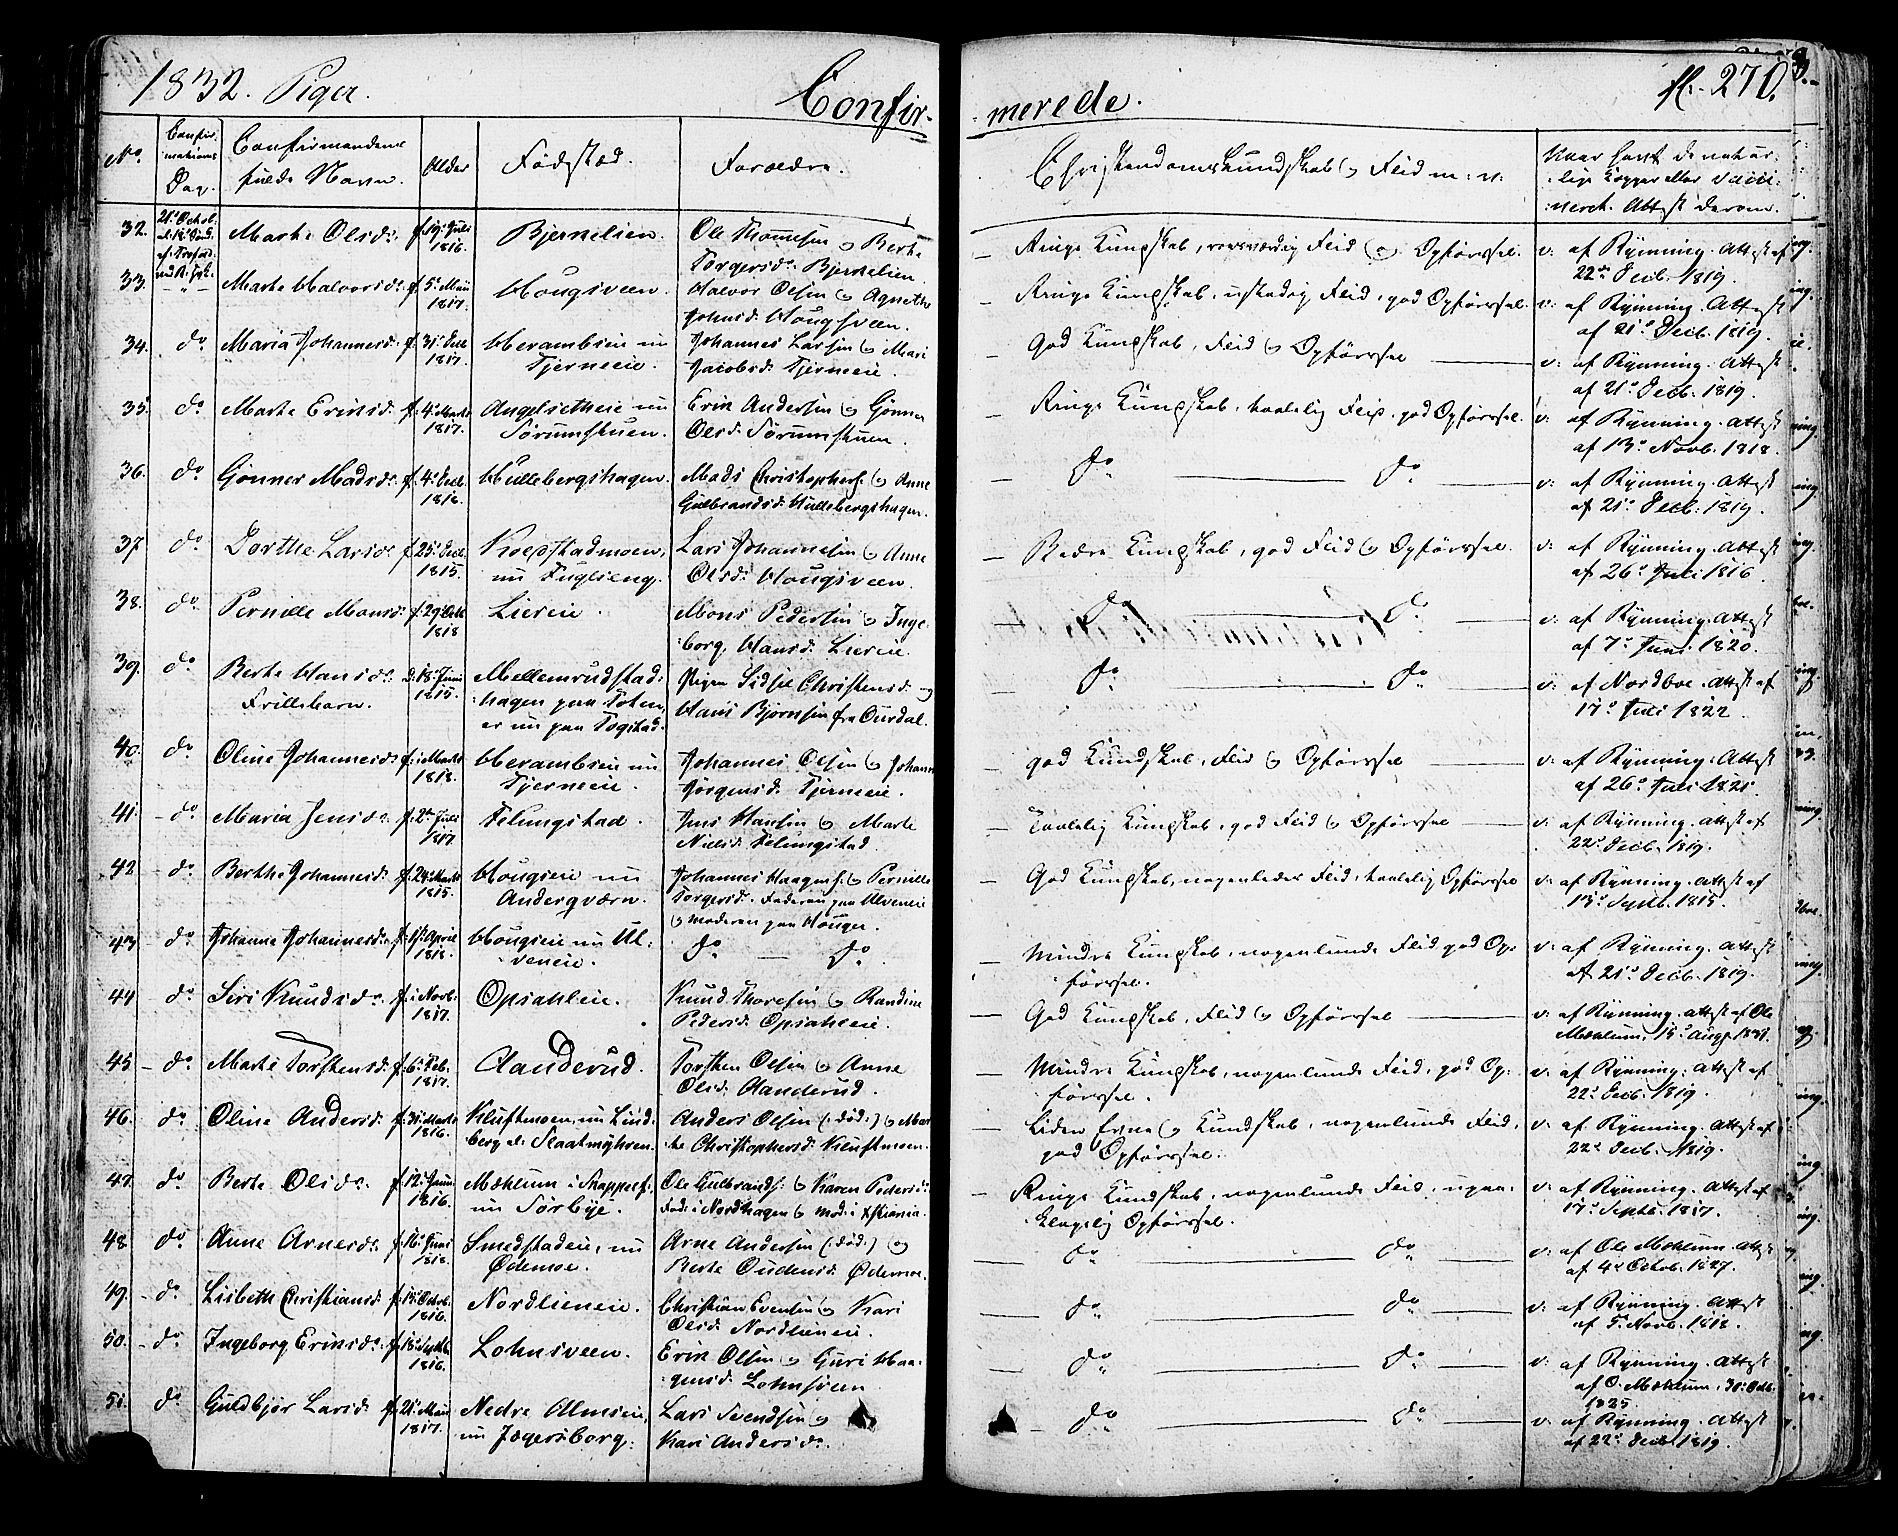 1832. Piger.
Confir-
merede.
fl. 270.
No.
Confir-
mations
Dag.
Confirmandens
fulde Navn.
Alder
Fødested.
Foræeldre.
Christendomskundskab og Flid m: v:
Naar havt de natur-
lige Kopper eller vacci-
neret. Attest derom.
32. Marthe Olsdr. f. 19. Juli 1816. Bjernelien. Ole Thommesen og Berthe
Torgersdr. Bjernelien.
Ringe Kundskab, Flid og Opførsel. v: af Rynning. Attest af
22de Decb. 1819.
33. Marthe Halvorsdr. f. 5. Mai 1817. Hougsveen. Halvor Olsen og Agnethe
Johnsdr. Hougsveen.
Ringe Kundskab, Flid, god Opførsel. v: af Rynning. Attest
af 21. Decb. 1819.
34. do Maria Johannesdr. f. 31. Dec. 1817. Herambseie nu
Tjerneeie. Johannes Larsen og Mari
Jacobsdr. Tjerneeie.
God Kundskab, Flid og Opførsel v: af Rynning. Attest
af 21. Decb. 1819.
35. do Marthe Eriksdr. f. 4. Marts 1817. Angelsetheie nu
Sørumstuen. Erik Andersen og Gønner
Olsdr. Sørumstuen.
Ringe Kundskab, taalelig Flid, god Opførsel. v: af Rynning. Attest
af 13. Novb. 1818.
36. do Gønner Madsdr. f. 4. Decb. 1816. Hullebergshagen. Mads Christophers. og Anne
Gulbrandsdr. Hullebergshagen.
do do v: af Rynning. Attest
af 21. Decb. 1819.
37 do Dorthe Larsdr. f. 25. Dec. 1815. Koepstadmoen,
nu Fuglseng. Lars Johannesen og Anne
Olsdr. Hougsveen.
Bedre Kundskab, god Flid og Opførsel. v: af Rynning. Attest
af 26. Juli 1816.
38. do Pernille Monsdr. f. 29. Octb. 1818 Liereie. Mons Pedersen og Inge-
borg Hansdr. Liereie.
do do v: af Rynning. Attest
af 7. Juni 1820.
39. do Berthe Hansdr.
Frillebarn. d. 18. Juni 1815. Mellemrudstad-
hagen paa Toten,
er nu paa Togstad. Pigen Sidsel Christensd. og
Hans Bjørnsen fra Ourdal.
do do v: af Nordboe. Attest af
17. Juli 1822.
40. do Oline Johannesdr. f. 1. Marts 1818. Herambseie nu
Tjerneeie. Johannes Olsen og Johann
Jørgensdr. Tjerneeie.
god Kundskab, Flid og Opførsel v: af Rynning. Attest
af 26. Juli 1821.
41. do Maria Jensdr. f. 2. Juli 1817. Felungstad. Jens Hansen og Marte
Nielsdr. Felungstad.
Taalelig Kundskab, god Flid og Opførsel v: af Rynning. Attest af
22. Decb. 1819.
42 do Berthe Johannesdr. f. 24. Marts 1815. Hougseie nu
Anderqværn. Johannes Haagens. og Pernille
Torgersdr. Faderen paa Ulveneie
og moderen paa Houger.
God Kundskab, nogenledes Flid, taalelig Opførsel v: af Rynning. Attest af
13. Septb. 1815.
43 do Johanne Johannesdr. f. 17. April 1818. Hougseie nu Ul-
veneie. do do
Mindre Kundskab, nogenlunde Flid, god Op-
førsel. v: af Rynning. Attest
af 21. Decb. 1819.
44 do Siri Knudsdr. f. 1. Novb. 1817. Opsahleie. Knud Thoresen og Randine
Pedersdr. Opsahleie.
God Kundskab, Flid og Opførsel v: af Rynning. Attest af Ole
Mæhlum, 15. Aug. 1831.
45 do Marte Torstensdr. f. 6. Feb. 1817. Aanderud. Torsten Olsen og Anne
Olsdr. Aanderud.
Mindre Kundskab, nogenlunde Flid, god Op-
førsel. v: af Rynning. Attest af
22. Decb. 1819.
46. do Oline Andersdr. f. 31. Marts 1816. Kluftmoen, nu Lund-
berg Staatmyhren. Anders Olsen (død:) og Mar-
the Christophersd. Kluftmoen.
Liden Evne og Kundskab, nogenlunde Flid,
god Opførsel. v: af Rynning. Attest af
22. Decb. 1819.
47. do Berte Olsdr. f. 12. Juni 1816. Mæhlum i
nu Sørbye. Ole Gulbrands. og Karen Pedersd.
Fad: i Nordhagen og Mod: i Xstiania.
Ringe Kundskab, nogenlunde Flid, upaa-
klagelig Opførsel. v: af Rynning. Attest af
17. Septb. 1817.
48 do Anne Arnesdr. f. 16. Juni 1818. Smedstadeie, nu
Ødemoe. Arne Andersen (død:) og
Berte Oudensd. Ødemoe.
do do v: af Ole Mæhlum. Attest
af 4. Octob. 1827.
49. do Lisbeth Christiansd. f. 18. Octob. 1816. Nordlieneie. Christian Evensen og Kari
Olsdr. Nordlieneie.
do do v: af Rynning. Attest
af 5. Novb. 1818.
50. do Ingeborg Eriksdr. f. 18. Septb. 1816. Lohnsveen. Erik Olsen og Guri Haa-
gensd. Lohnsveen
do do v: af Rynning. Attest
af O. Mæhlum, 30. Octb. 1825
51. do Guldbjør Larsd. f. 21. Mai 1817. Nedre Almseie,
nu Jægersborg. Lars Svendsen og
Kari Andersdr.
do do v: af Rynning. Attest
af 22. Decb. 1819.